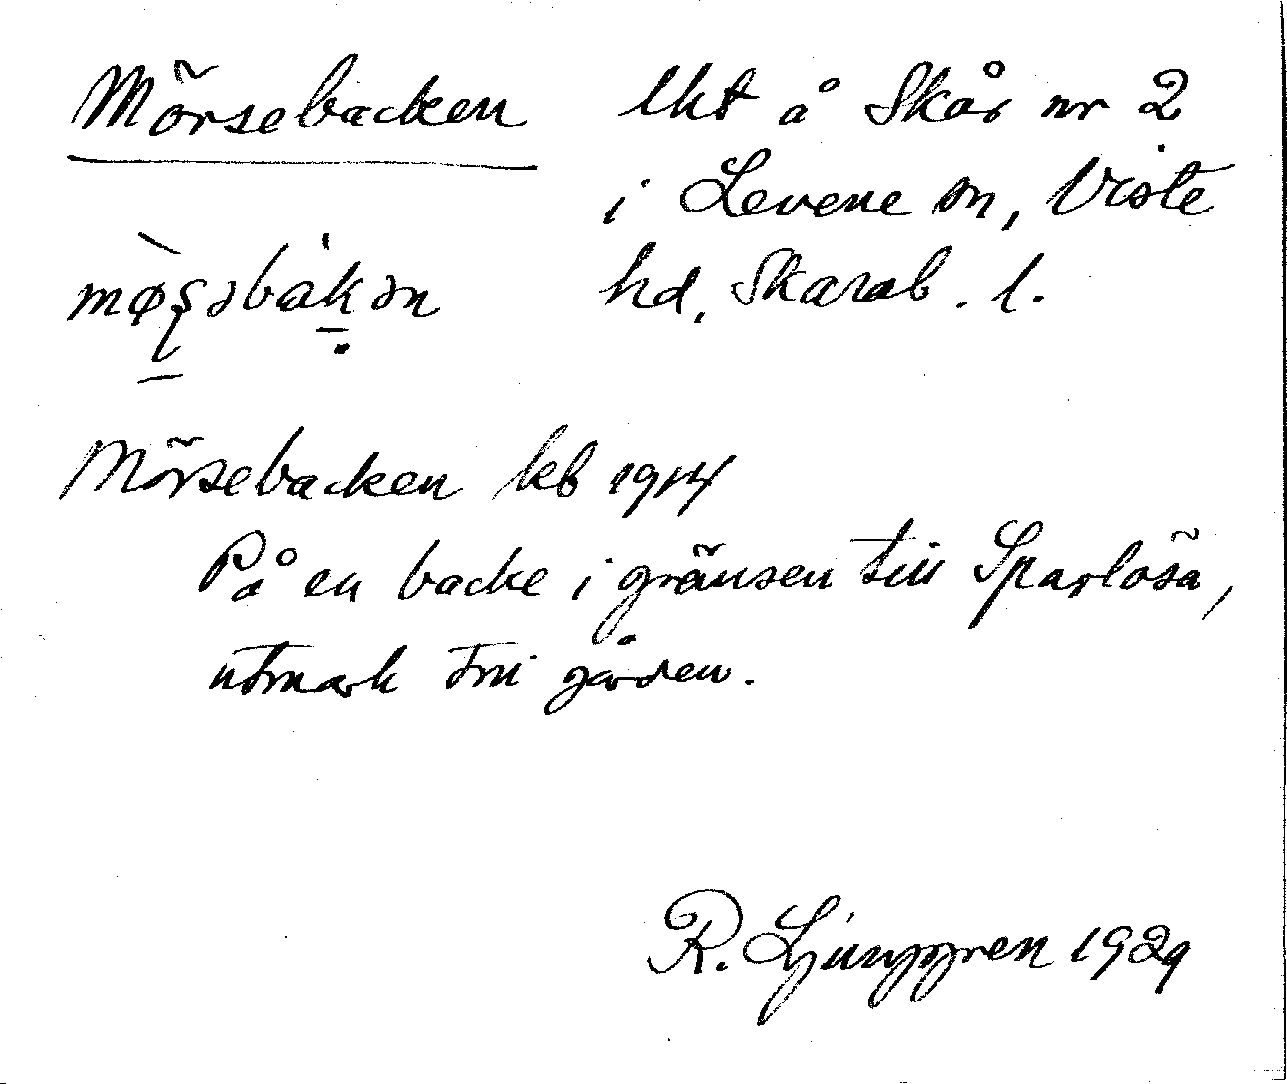 Mörsebacken
lht å Skår nr 2
i Levene sn, Viste
hd, Skarab. l.
Mörsebacken kb 1914
På en backe i gränsen till Sparlösa,
utmark till gården.
R. Ljunggren 1929